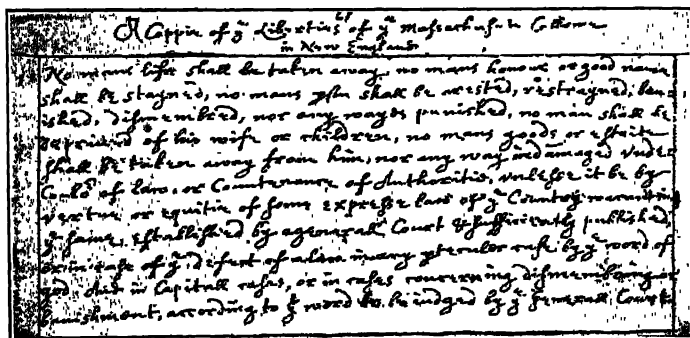 A Coppie of yͤ Liberties of yͤ Massachusets Collonie
in New England
No mans life shall be taken away, no mans honour or good name
shall be stayned, no mans pson shall be arested, restrained, ban-
ished, dismembred, nor any wayes punished, no man shall be
deprived of his wife or children, no mans goods or estaite
shall be taken away from him, nor any way indamaged vnder
Coulor of law, or Countenance of Authoritie, vnlesse it be by
vertue or equitie of some expresse law of yͤ Country waranting
yͤ same, established by a generall Court & sufficiently published,
or in case of yͤ defect of a law in any pteculer case by yͤ word of
god. And in Capitall cases, or in cases concerning dismembring or
banishment, according to yͭ word to be iudged by yͤ Generall Court